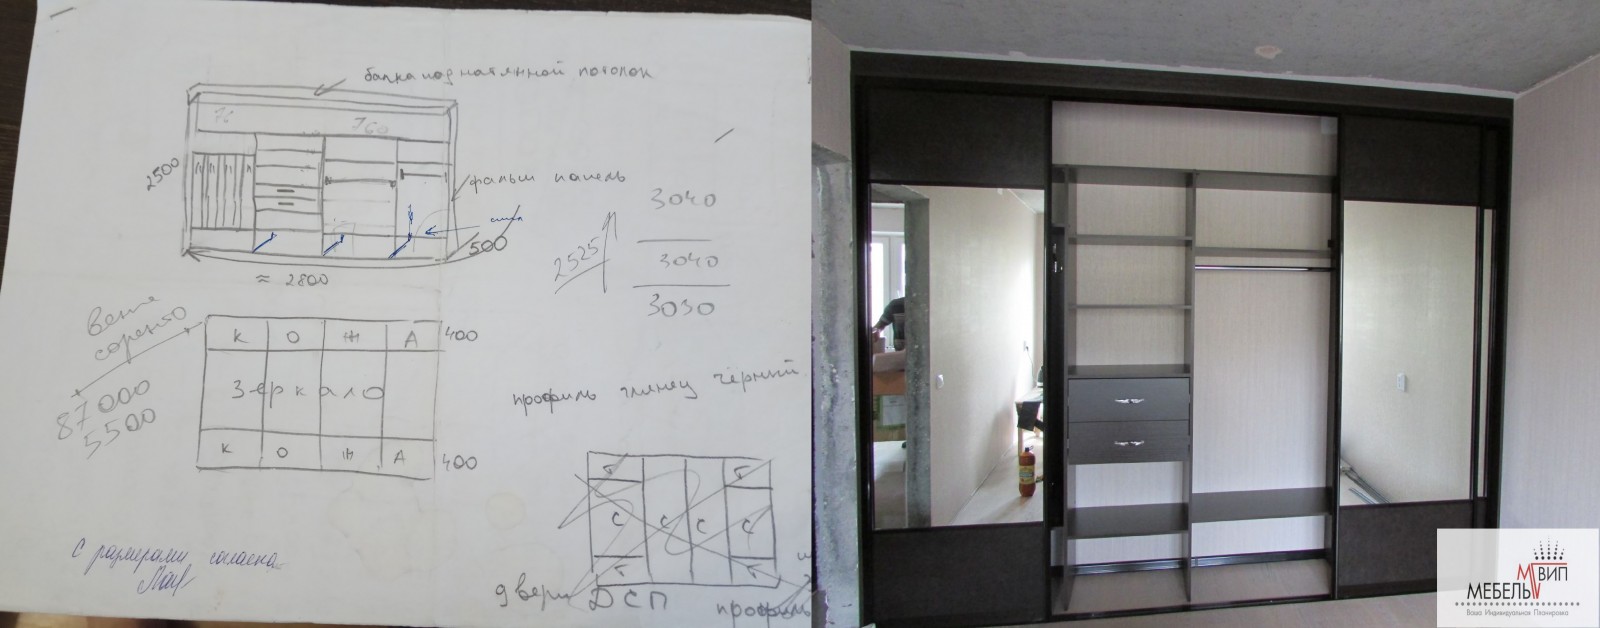 балка под натяжной потолок
76
760
2500
фальш панель
500
≈ 2800
3040
3040
3030
2525
венге
соренто
87000
5500
К О Ж А 400
Зеркало
К О Ж А 400
профиль глянец чёрный
С размерами согласна
С С С С
двери ДСП профиль
МЕБЕЛЬ ВИП
Ваша Индивидуальная Планировка